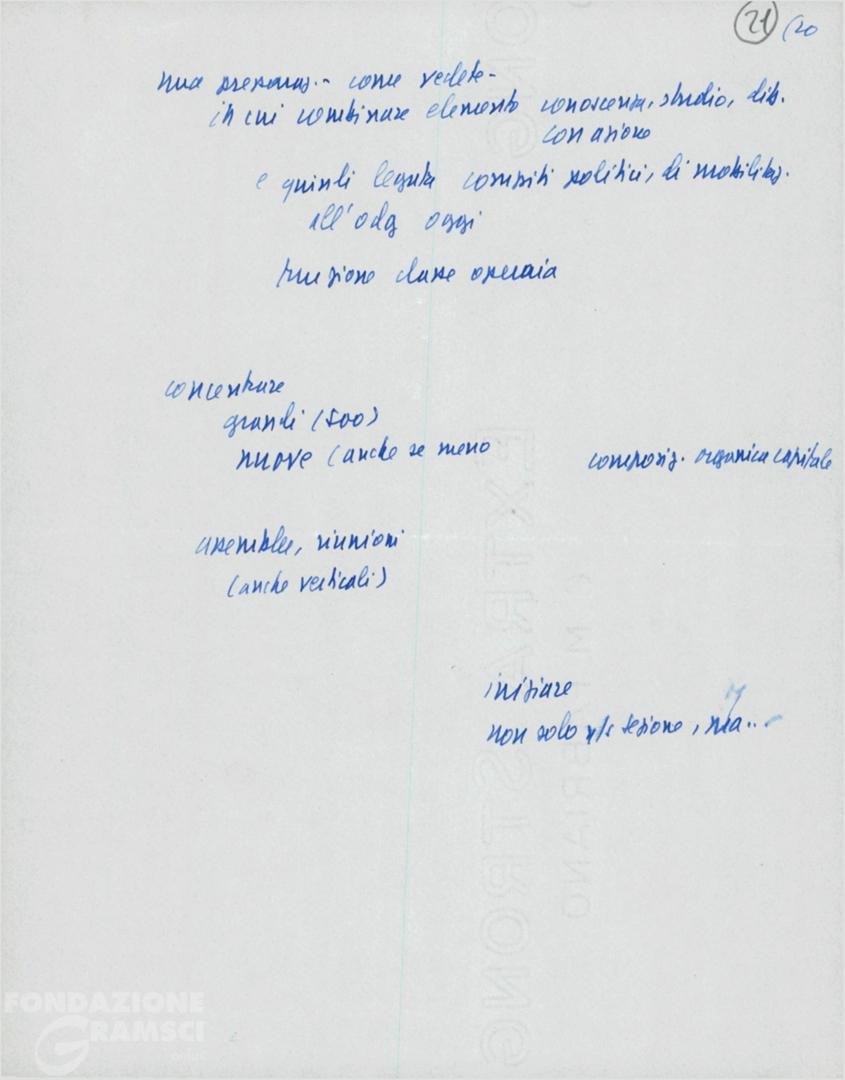 21 (20
una preparaz. - come vedete -
in cui combinare elemento conoscenza, studio, dib.
con azione
e quindi legata compiti politici, di mobilitaz.
all'odg oggi
funzione classe operaia
concentrare
grandi (500)
nuove (anche se meno
composiz. organica capitale
assemblee, riunioni
(anche verticali)
iniziare
non solo sezione, ma..
EXTRA STRONG
FABRIANO
FONDAZIONE
GRAMSCI
onlus